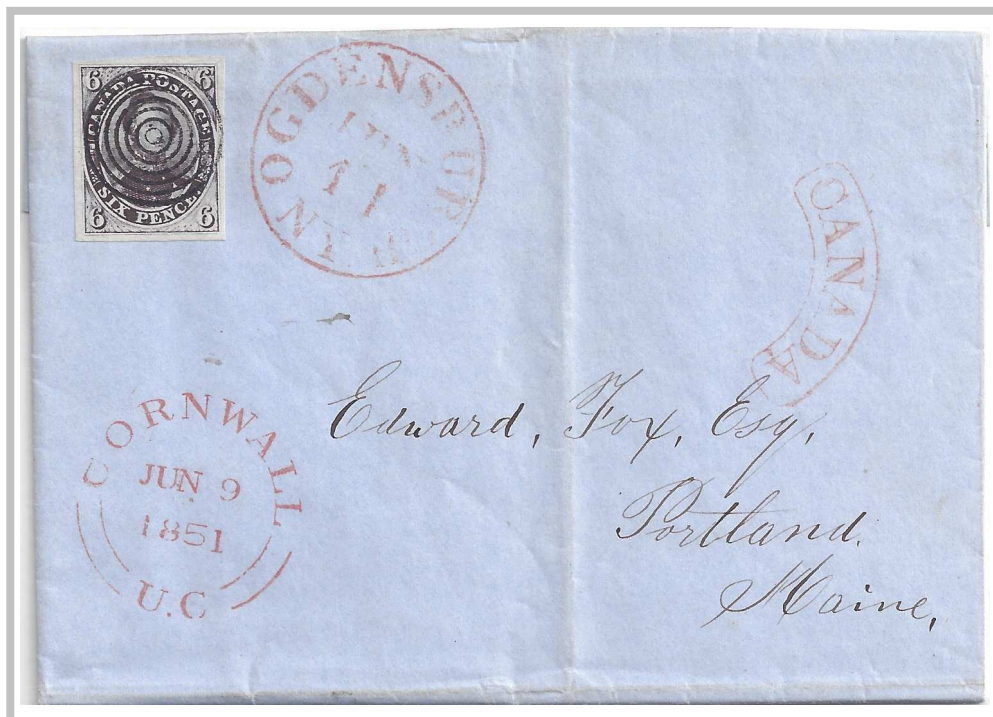 6 6
CANADA POSTAGE
SIX PENCE
6 6
OGDENSBUR N.Y.
11
CANADA
CORNWALL
JUN 9
1851
U.C
Edward, Fox, Esq,
Portland.
Maine,